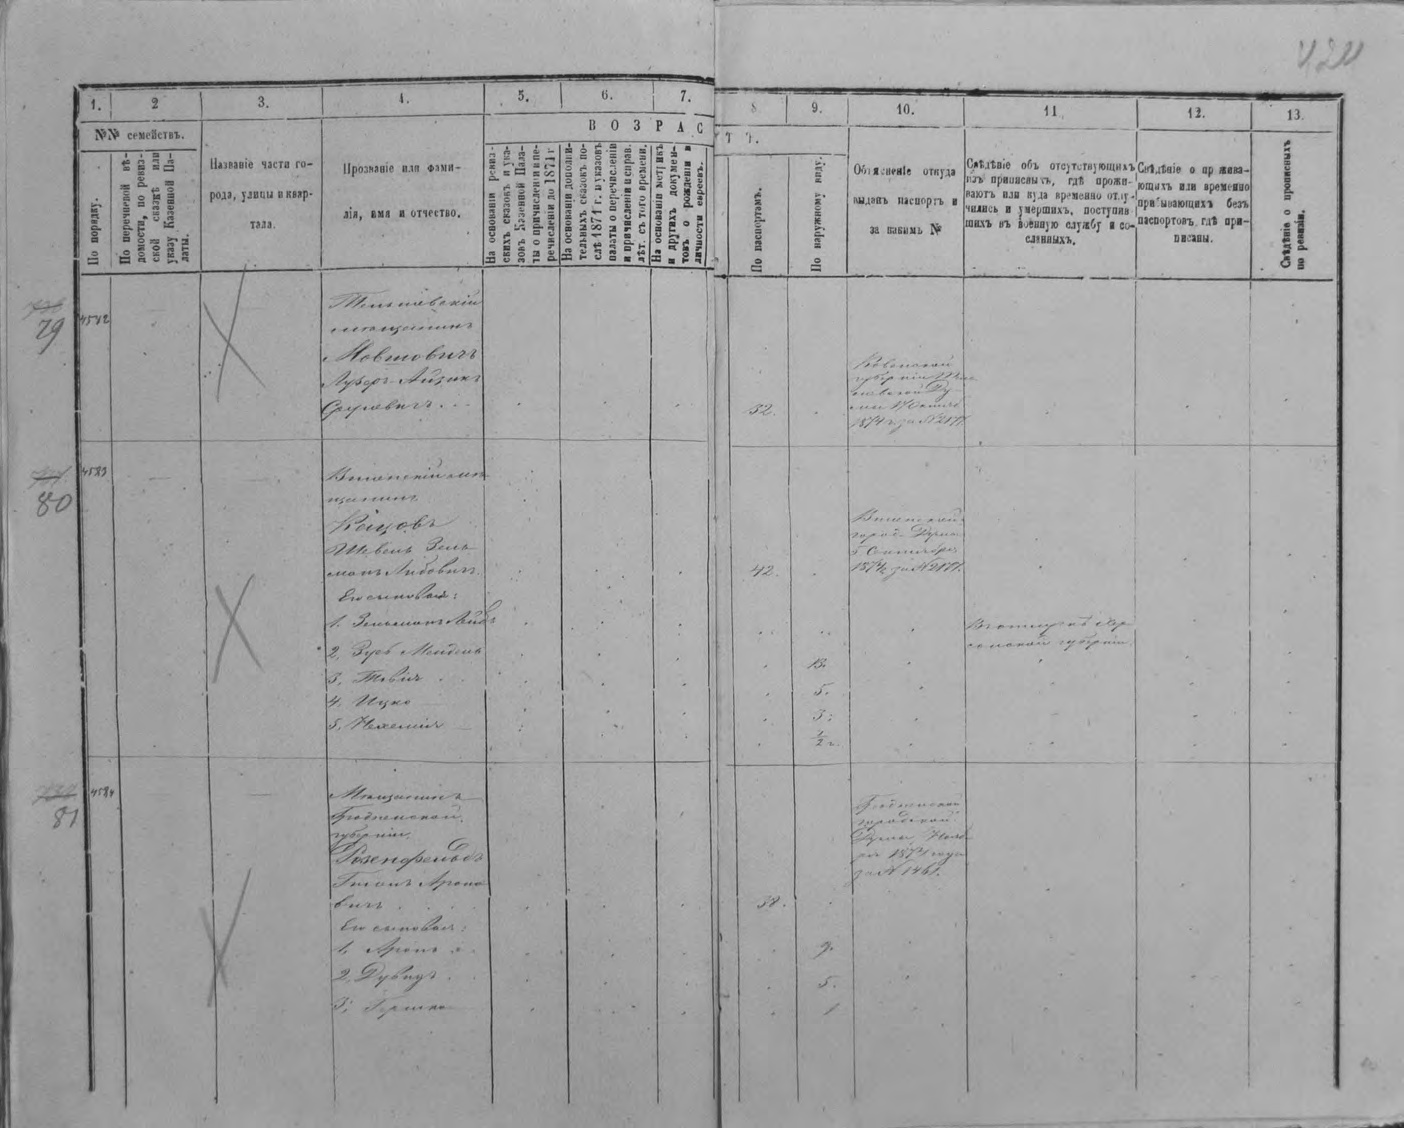 424
1.
2
3.
4.
5.
6.
7.
8
9.
10.
11
12.
13.
ВОЗРАС
ТЪ.
№№ семействъ.
По порядку.
По перечневой вѣ-
домости, по ревиз-
ской сказкѣ или
указу Казенной Па-
латы.
Названіе части го-
рода, улицы и квар-
тала.
Прозваніе или фами-
лія, имя и отчество.
На основаніи ревиз-
скихъ сказокъ и ука-
зовъ Казенной Пала-
ты о причисленіи и пе-
речисленіи до 1871 г
На основаніи дополни-
тельныхъ сказокъ по-
слѣ 1871 г. и указовъ
палаты о перечисленіи
и причисленіи и справ.
лѣт. съ того времени.
На основаніи метрикъ
и другихъ докумен-
товъ о рожденіи и
личности евреевъ.
По паспортамъ.
По наружному виду.
Объясненіе откуда
выданъ паспортъ и
за какимъ №
Свѣдѣніе объ отсутствующихъ
изъ приписныхъ, гдѣ прожи-
ваютъ или куда временно отлу-
чились и умершихъ, поступив
шихъ въ военную службу и со-
сланныхъ.
Свѣдѣніе о прожива-
ющихъ или временно
пребывающихъ безъ
паспортовъ, гдѣ при-
писаны.
Свѣдѣніе о прописныхъ
по ревизіи.
79
4582
Тельшевскій
мѣщанинъ
Мовшовичъ
Айзикъ
32.
Ковенской
губерніи
1874 г. за № 2177
80
4583
Виленскій мѣ-
щанинъ
Кацовъ
Шевель Зель-
манъ Лейбовичъ.
Его сыновья:
1. Зельманъ Лейбъ
2. Мендель
3. Тевія
4. Ицко
5. Нехемія
42.
Виленской
город. Думы
5 Сентября
1874 за № 2177.
губерніи.
13.
5.
3.
1/2 г.
81
4584
Мѣщанинъ
Гродненской
губерніи.
Розенфельдъ
Ароно-
вичъ
Его сыновья:
1. Аронъ
2. Дувидъ
3. Гершко
38.
Гродненской
городской
Думы Нояб-
ря 1874 года
за № 1461.
9.
5.
1